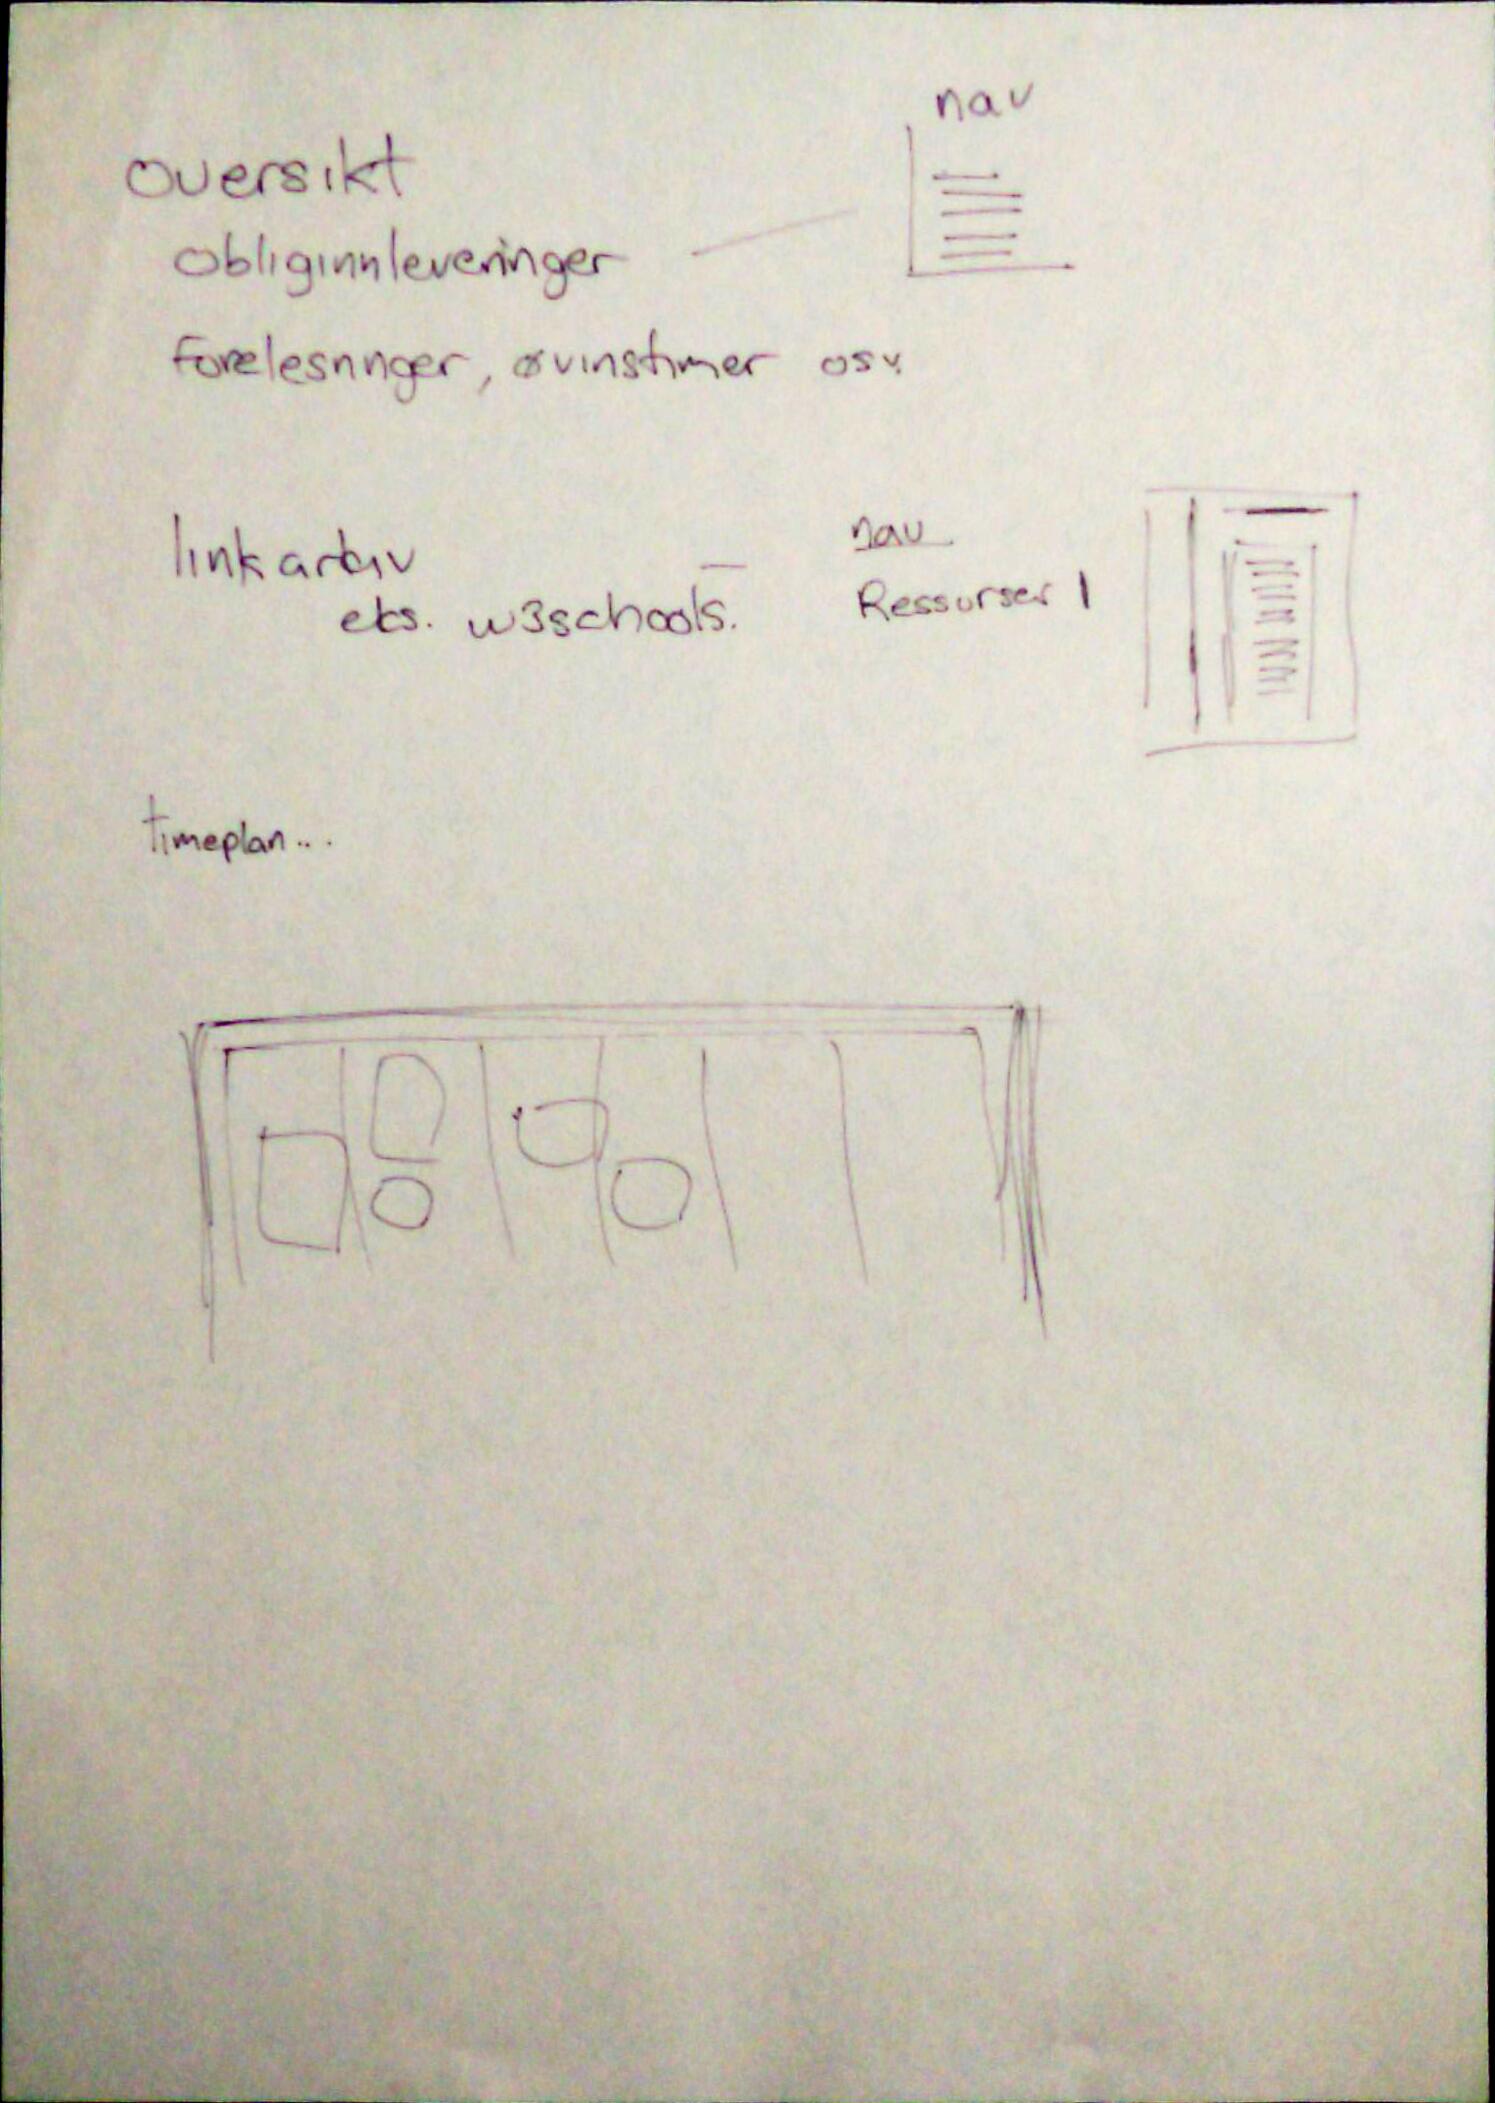 nav
oversikt
obliginnleveringer
forelesninger, øvinstimer osv.
linkarkiv
nav
eks. w3schools.
Ressurser
timeplan...